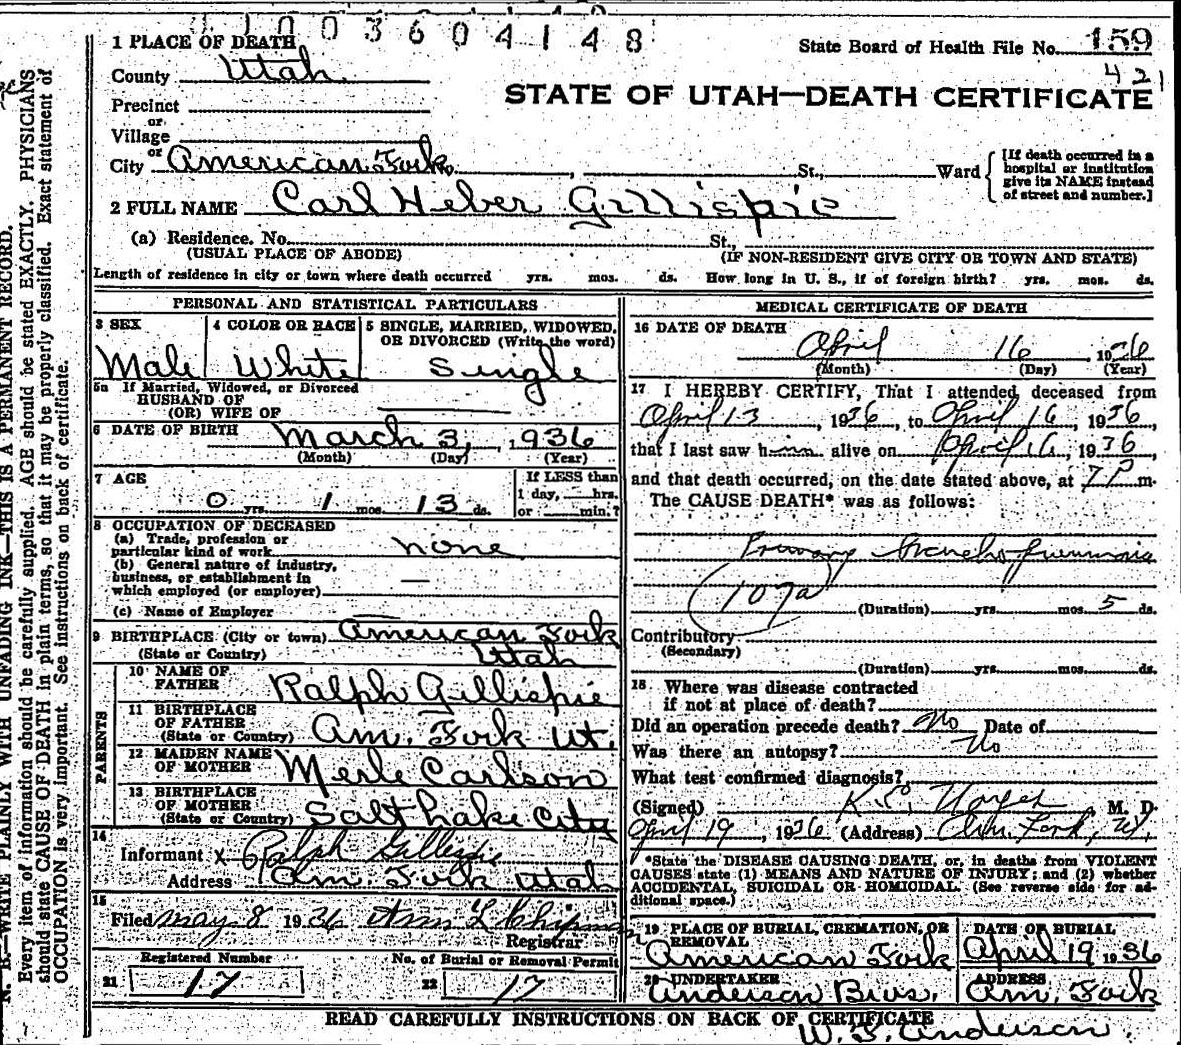 1003604148
1 PLACE OF DEATH
State Board of Health File No. 159
County Utah
421
STATE OF UTAH—DEATH CERTIFICATE
Precinct
or
Village
or
City American Fork, St., Ward
[If death occurred in a hospital or institution give its NAME instead of street and number.]
2 FULL NAME Carl Heber Gillispie
(a) Residence. No. St.,
(USUAL PLACE OF ABODE) (IF NON-RESIDENT GIVE CITY OR TOWN AND STATE)
Length of residence in city or town where death occurred yrs. mos. ds. How long in U. S., if of foreign birth? yrs. mos. ds.
PERSONAL AND STATISTICAL PARTICULARS
3 SEX
Male
4 COLOR OR RACE
White
5 SINGLE, MARRIED, WIDOWED, OR DIVORCED (Write the word)
Single
5a If Married, Widowed, or Divorced
HUSBAND OF
(OR) WIFE OF
6 DATE OF BIRTH March 3, 1936
(Month) (Day) (Year)
7 AGE
0 yrs. 1 mos. 13 ds.
If LESS than
1 day, hrs.
or min.?
8 OCCUPATION OF DECEASED
(a) Trade, profession or
particular kind of work none
(b) General nature of industry,
business, or establishment in
which employed (or employer) —
(c) Name of Employer
9 BIRTHPLACE (City or town) American Fork
(State or Country) Utah
PARENTS
10 NAME OF
FATHER Ralph Gillispie
11 BIRTHPLACE
OF FATHER
(State or Country) Am. Fork Ut.
12 MAIDEN NAME
OF MOTHER Merle Carlson
13 BIRTHPLACE
OF MOTHER
(State or Country) Salt Lake City
14
Informant X Ralph Gillispie
Address Am. Fork Utah
15
Filed May 8 1936 Ann L Chipman
Registrar
Registered Number No. of Burial or Removal Permit
21 17 22 17
MEDICAL CERTIFICATE OF DEATH
16 DATE OF DEATH
April 16, 1936
(Month) (Day) (Year)
17 I HEREBY CERTIFY, That I attended deceased from
April 13, 1936, to April 16, 1936,
that I last saw him alive on April 16, 1936,
and that death occurred, on the date stated above, at 7 P m.
The CAUSE DEATH* was as follows:
Primary broncho pneumonia
107a
(Duration) yrs. mos. 5 ds.
Contributory
(Secondary)
(Duration) yrs. mos. ds.
18 Where was disease contracted
if not at place of death?
Did an operation precede death? No Date of
Was there an autopsy? No
What test confirmed diagnosis?
(Signed) M. D.
April 19, 1936 (Address) Am. Fork, Ut.
*State the DISEASE CAUSING DEATH, or, in deaths from VIOLENT
CAUSES state (1) MEANS AND NATURE OF INJURY; and (2) whether
ACCIDENTAL, SUICIDAL OR HOMICIDAL. (See reverse side for ad-
ditional space.)
19 PLACE OF BURIAL, CREMATION, OR
REMOVAL
American Fork
DATE OF BURIAL
April 19 1936
20 UNDERTAKER
Anderson Bros.
ADDRESS
Am. Fork
READ CAREFULLY INSTRUCTIONS ON BACK OF CERTIFICATE
W. S. Anderson.
N. B.—WRITE PLAINLY WITH UNFADING INK—THIS IS A PERMANENT RECORD.
Every item of information should be carefully supplied. AGE should be stated EXACTLY. PHYSICIANS
should state CAUSE OF DEATH in plain terms, so that it may be properly classified. Exact statement of
OCCUPATION is very important. See instructions on back of certificate.